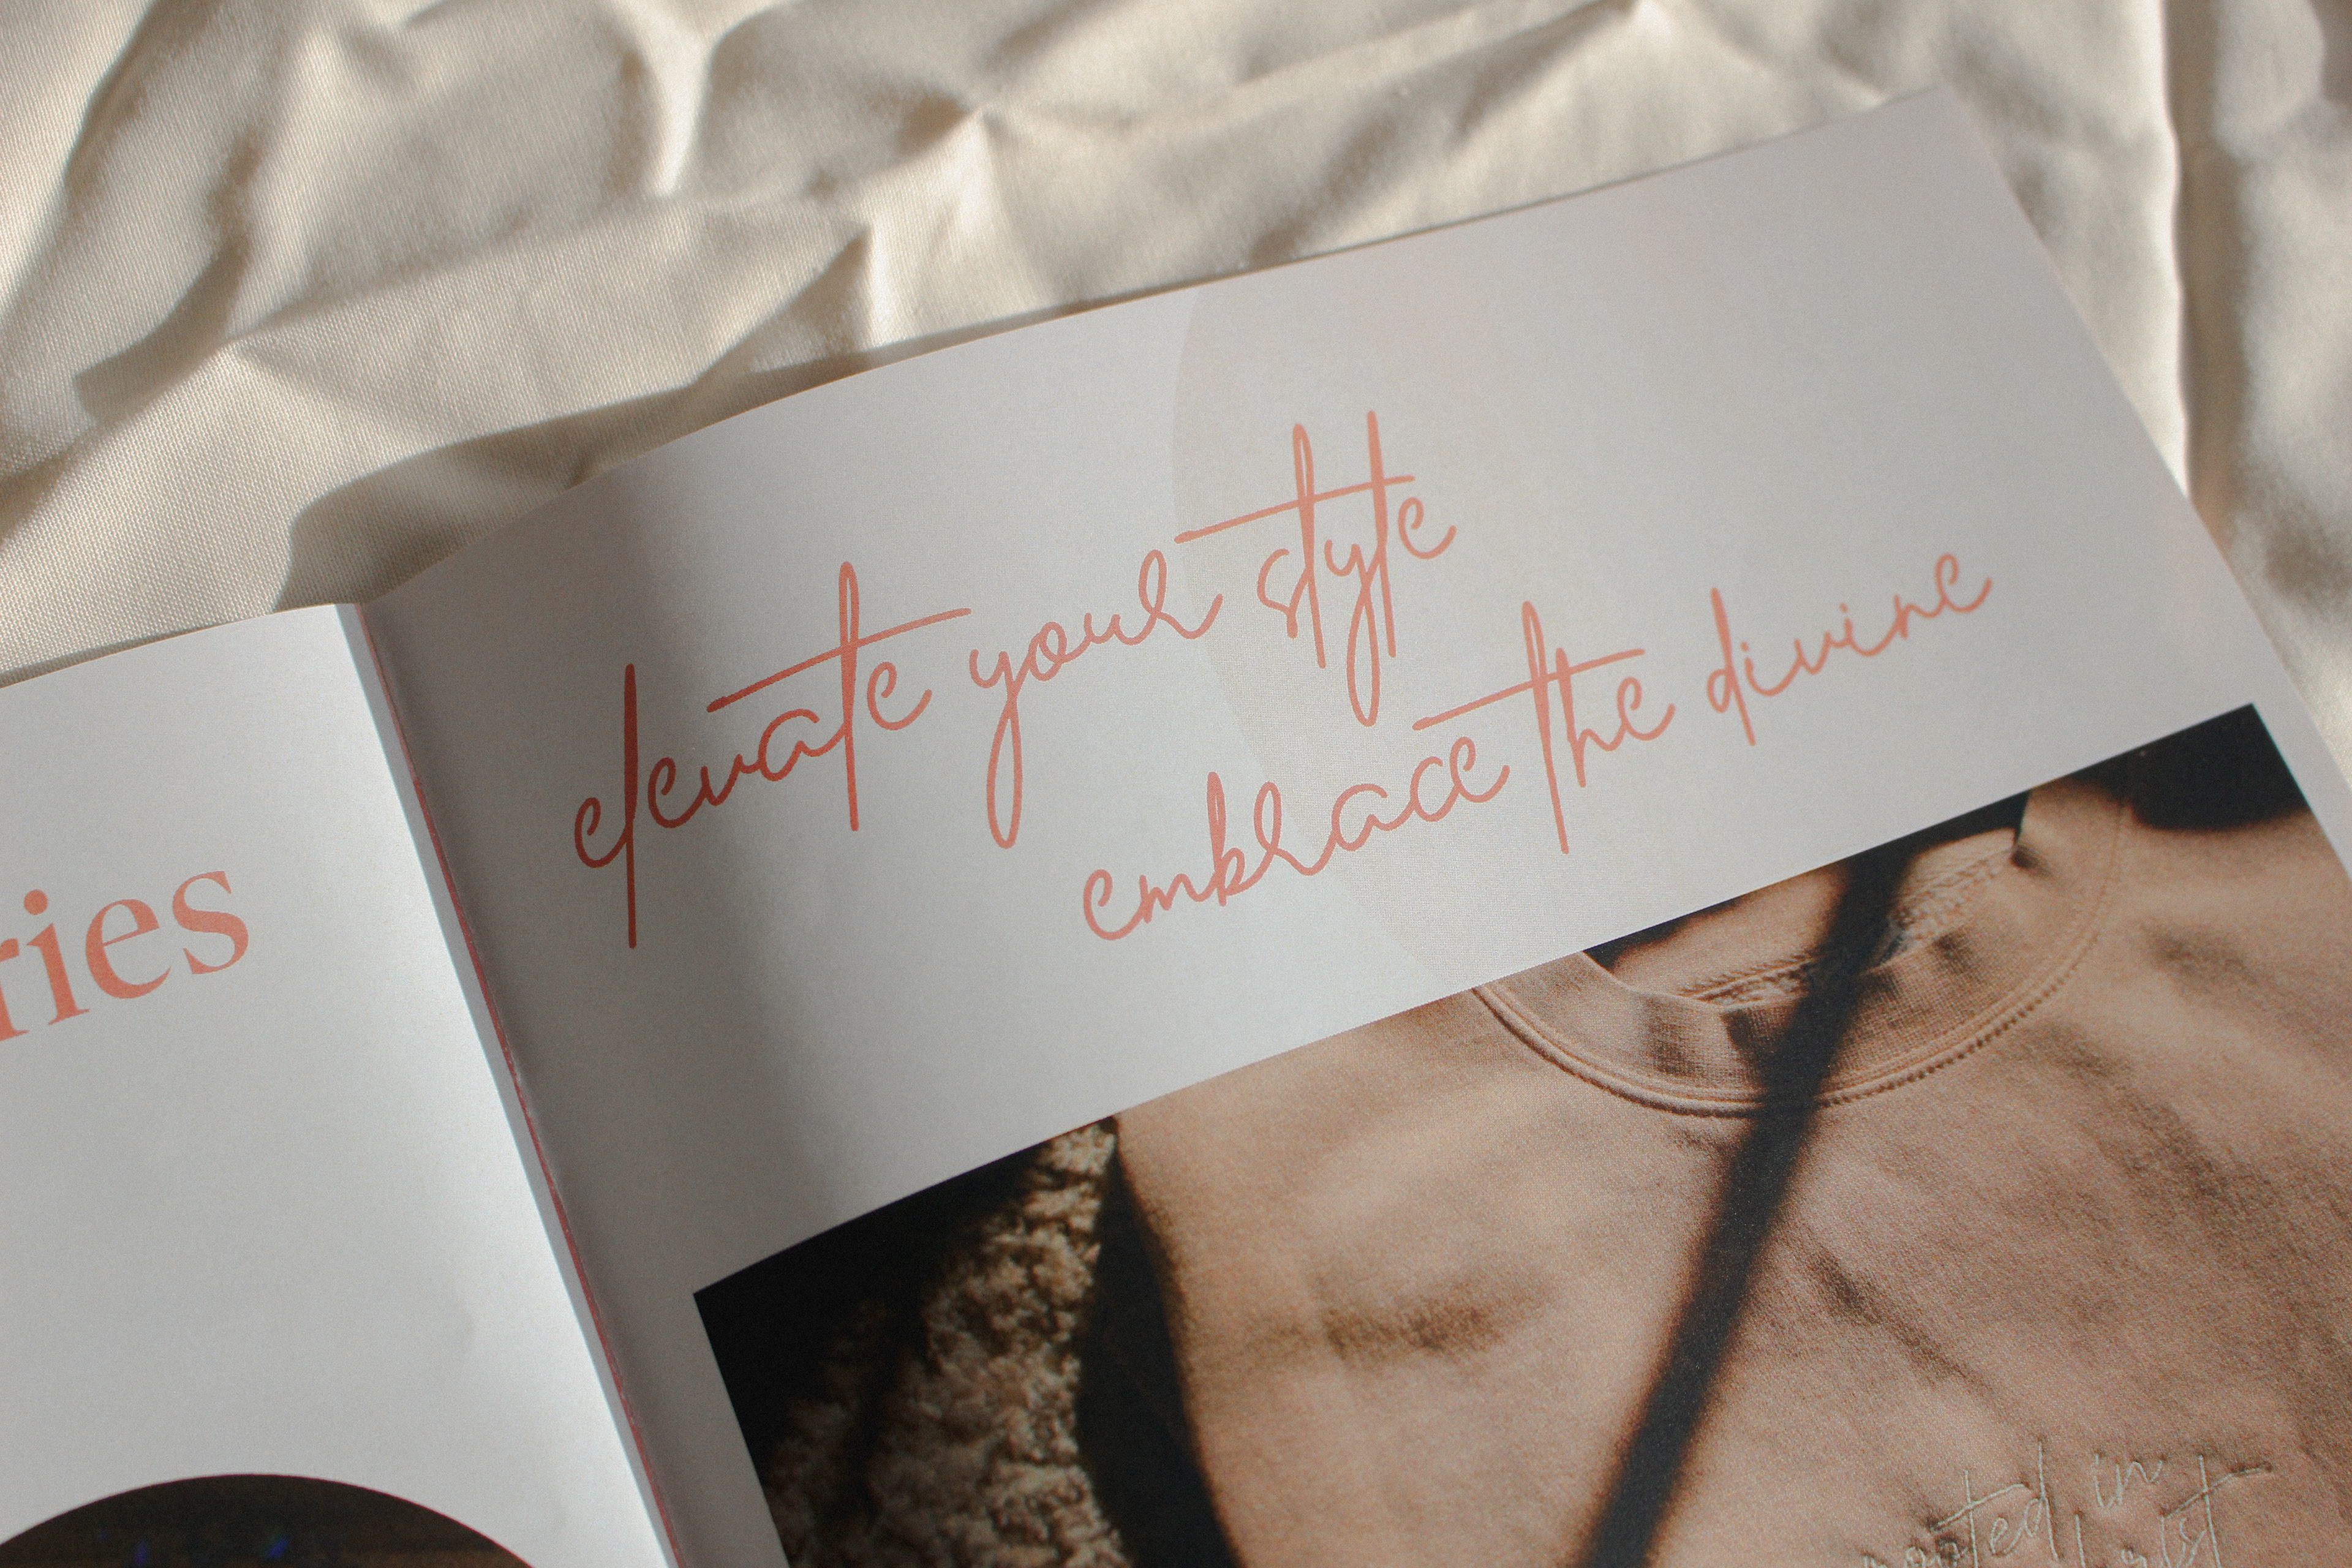 ries
elevate your style
embrace the divine
in